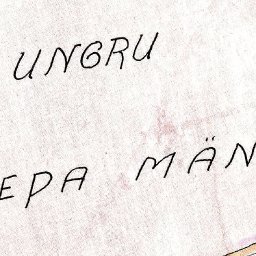 UNGRU
EPA MÄN